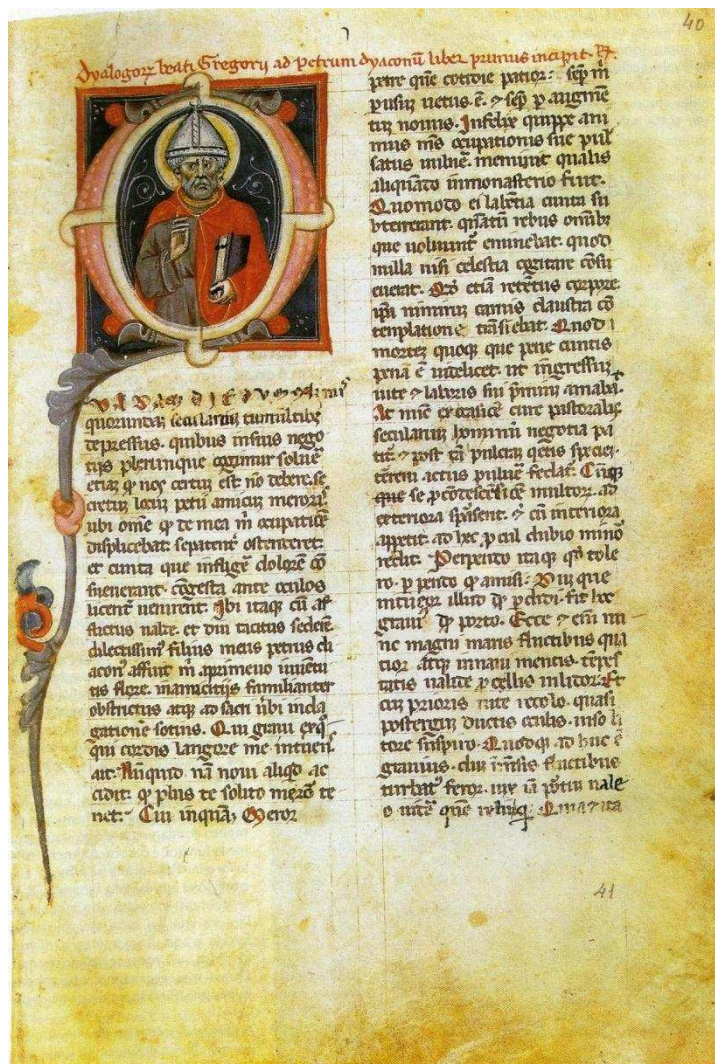 40
Dyalogorꝝ beati Gregorii ad petrum dyaconū liber primus incipit.
quorundaꝫ seculariū tumultibꝫ
depressus. quibus insuis nego
tijs plerunque cogimur soluē
etiaꝫ qͥ nos certuꝫ est nō debere. se
cretuꝫ locuꝫ petii amicuꝫ meroris
ubi omē qͥ de mea m̄ occupatiōe
displicebat. se patent̄ ostenderet.
et cuncta que infligē dolorē cō
sueuerant. cōgesta ante oculos
licent̄ uenirent. Ibi itaqꝫ cū af
flictus ualde. et diu tacitus sedeēȝ
dilectissimꝰ filius meus petrus di
aconꝰ affuit m̄ a primeuo iuuētu
tis flore. in amicitijs familiariter
obstrictus atqꝫ ad sacri ūbi inda
gationē sotius. Qui graui exqͥ
qui cordis langore me intuenˢ
ait. Nūquid nā noui aliqͩ ac
cidit. qͥ plus te solito meror te
net. Cui inquaꝫ Meror
petre quē cotidie patior. semꝑ m̄
ꝑ usuꝫ uetus ē. ⁊ semꝑ ꝑ augmē
tuꝫ nouus. Infelix quippe ani
mus mꝰ occupationis sue pul
satus uulnē. meminit qualis
aliquādo in monasterio fuit.
Quomodo ei labentia cuncta su
btererant. quātū rebus omībꝫ
que uoluunt̄ eminebat. quod
nulla nisi celestia cogitare cōsu
euerat. Qͥ etiā retētus corpore
ipa nimiuꝫ carnis claustra cō
templatione trāsiebat. Quod
mortēꝫ quoqꝫ que pene cunctis
pena ē uidelicet. ut ingressuꝫ
uite ⁊ laboris sui p̄miuꝫ amabā.
At nūc ex occasiōe cure pastoralis
seculariuꝫ hominū negotia pa
tit̄ ⁊ post tā pulcraꝫ qͥetis speciē.
terreni actus puluē fedat̄. Cūqꝫ
se ꝓ cōdescēsiōe multorꝝ. ad
exteriora sparserit. ⁊ cū interiora
appetit. ad hec ꝓcul dubio minor
redit. Perpendo itaqꝫ qͥ tole
ro. ꝑpendo qͥ amisi. Dūque
intueor illud qͥ ꝑdidi. fit hoc
grauiꝰ qͥ porto. Ecce ⁊ enī nu
nc magni maris fluctibus qua
tior. atqꝫ in naui mentis. tēpes
tatis ualide ꝓcellis illidor. Et
cuꝫ prioris uite recolo. quasi
postergum ductis oculis. uiso li
tore suspiro. Quodqꝫ ad huc ē
grauius. duꝫ īmēsis fluctibus
turbatꝰ feror. uix iā portū uale
o uidē quē reliqͥ. Quia ⁊ ita
41